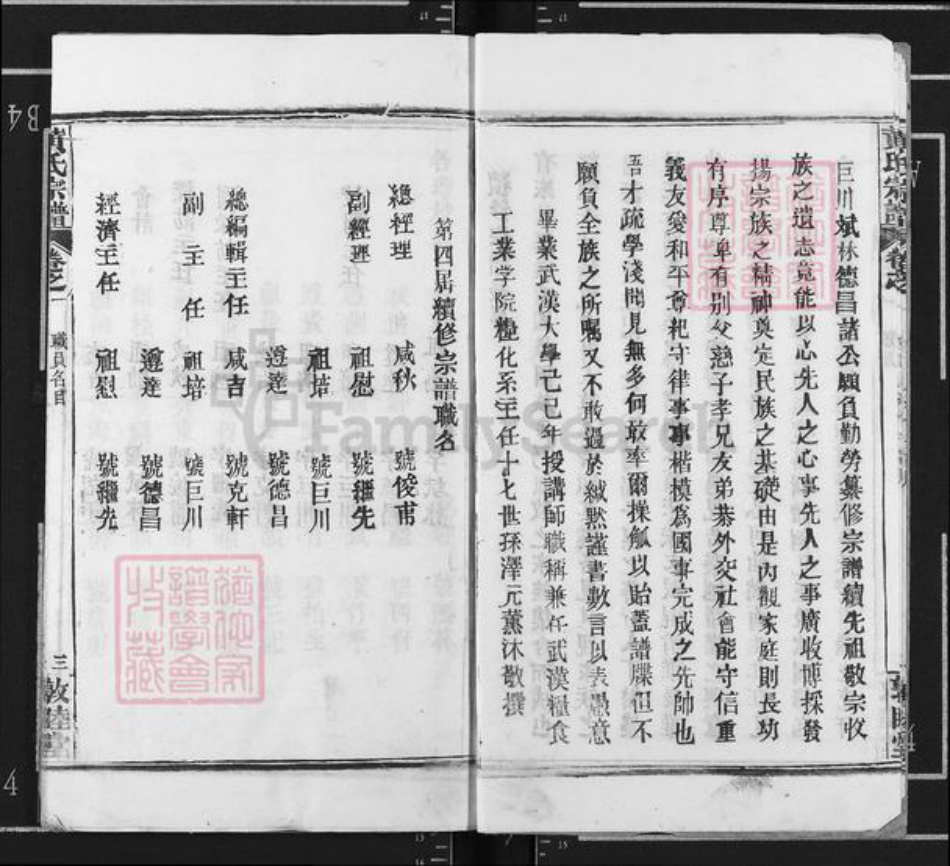 巨川斌林德昌諸公願負勤勞纂修宗譜續先祖敬宗收
族之遺志竟能以心先人之心事先人之事廣收博採發
揚宗族之精神奠定民族之基礎由是內觀家庭則長幼
有序尊卑有別父慈子孝兄友弟恭外交社會能守信重
義友愛和平奢祀守律事事楷模為國事完成之先帥也
吾才疏學淺聞見無多何敢率爾操觚以貽蓋譜牒但不
願負全族之所囑又不敢過於緘默謹書數言以表愚意
畢業武漢大學己巳年授講師職稱兼任武漢糧食
工業学院糧化系主任十七世孫澤元薰沐敬撰
第四届續修宗譜職名
總經理 咸秋 號俊甫
副經理 祖慰 號繼先
祖培 號巨川
遵達 號德昌
總編輯主任 咸吉 號克軒
副主任 祖培 號巨川
遵達 號德昌
經濟主任 祖慰 號繼先
黃氏宗譜 卷之一 職員名目 三 敦睦堂
黃氏宗譜 卷之
FamilySearch
B4
4